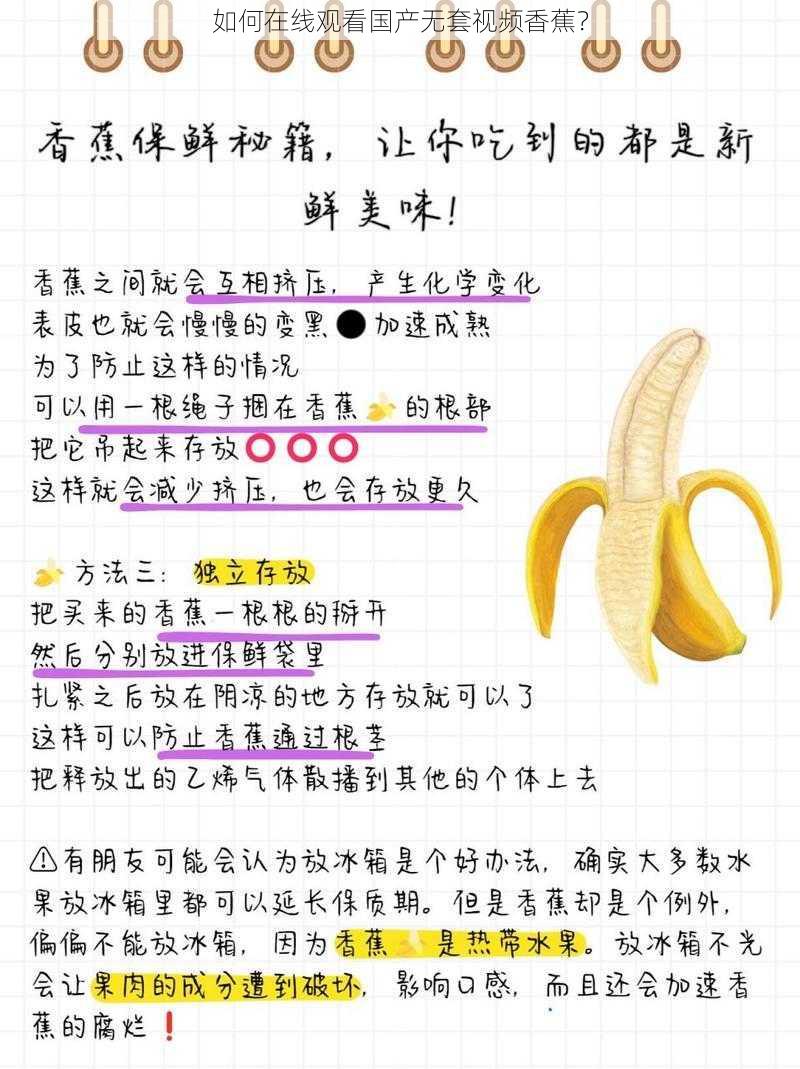 如何在线观看国产无套视频香蕉?
香蕉保鲜秘籍，让你吃到的都是新
鲜美味!
香蕉之间就会互相挤压，产生化学变化
表皮也就会慢慢的变黑⚫加速成熟
为了防止这样的情况
可以用一根绳子捆在香蕉🍌的根部
把它吊起来存放⭕⭕⭕
这样就会减少挤压，也会存放更久
🍌方法三：独立存放
把买来的香蕉一根根的掰开
然后分别放进保鲜袋里
扎紧之后放在阴凉的地方存放就可以了
这样可以防止香蕉通过根茎
把释放出的乙烯气体散播到其他的个体上去
⚠有朋友可能会认为放冰箱是个好办法，确实大多数水
果放冰箱里都可以延长保质期。但是香蕉却是个例外，
偏偏不能放冰箱，因为香蕉🍌是热带水果。放冰箱不光
会让果肉的成分遭到破坏，影响口感，而且还会加速香
蕉的腐烂❗